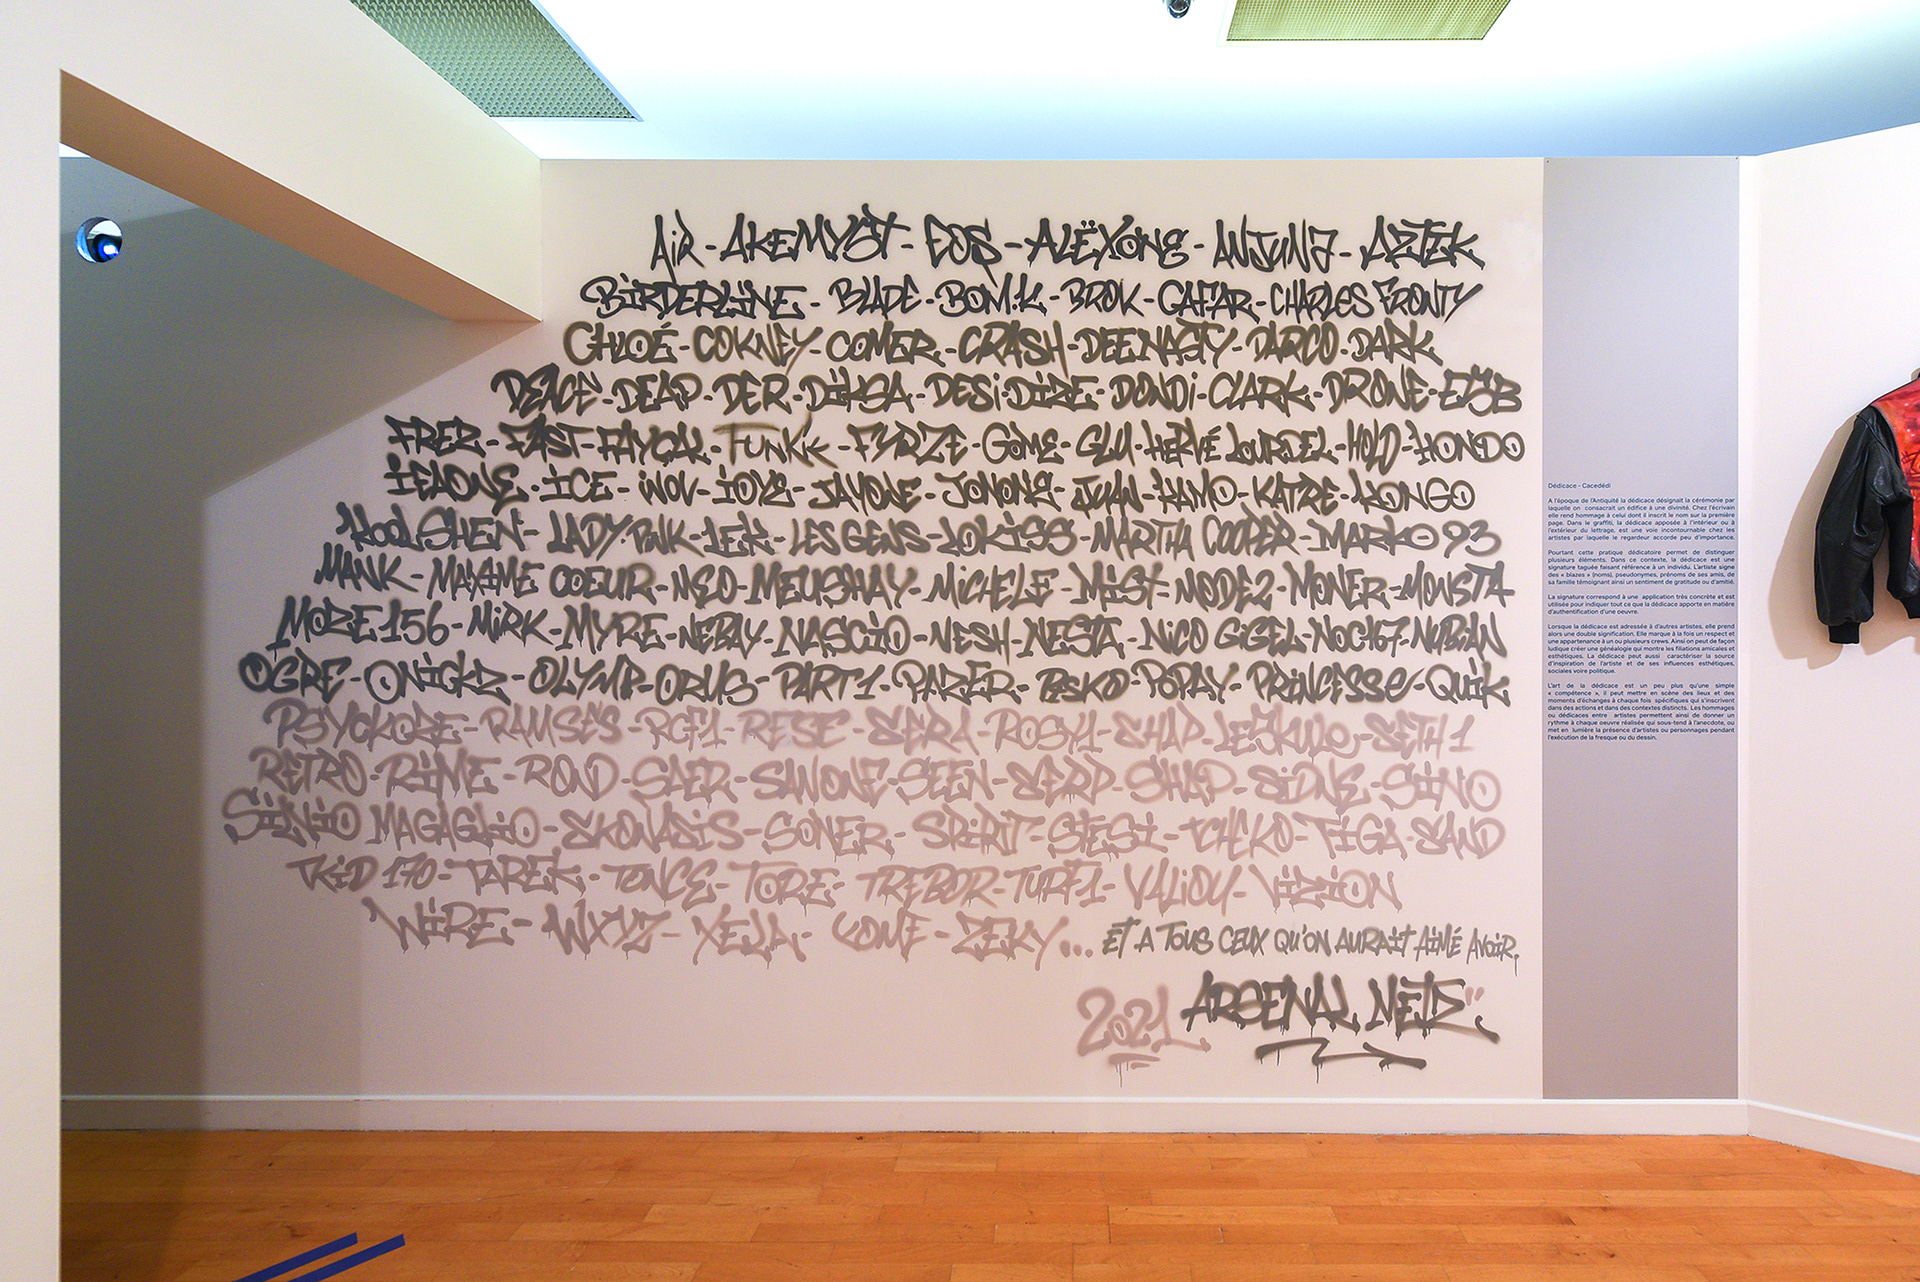 AiR - AKEMYST - EOS - ALËXONE - ANJUNA - AZTEK
BIRDERLINE - BLADE - BOM.K - BROK - CAFAR - CHARLES FRONTY
CHLOÉ - COKNEY - COMER - CRASH - DEE NASTY - DARCO - DARK
DEACE - DEAP - DER - DIKSA - DESI - DIZE - DONDI - CLARK - DRONE - ESB
FRER - FAST - FAYÇAL - FUNKie - FYRZE - GOME - GLU - HERVÉ LOURDEL - HOLD - HONDO
IEAONE - ICE - INOV - IOYE - JAYONE - JONONE - JUAN - KAMO - KATRE - KONGO
KOOL SHEN - LADY PINK - LEK - LES GENS - LOKISS - MARTHA COOPER - MARKO 93
MANK - MAXIME COEUR - NEO - MEUSHAY - MICHELE - MIST - MODE2 - MONER - MONSTA
MOZE 156 - MIRK - MYRE - NEBAY - NASCIO - NESH - NESTA - NICO GIGEL - NOC 167 - NUBIAN
OGRE - ONICKZ - OLYMP - ORUS - PART1 - PAZER - PESKO - POPAY - PRINCESSE - QUIK
PSYCKOZE - RAMSÉS - RCF1 - RESE - SARA - ROSY1 - SHAP - LESKULO - SETH 1
RETRO - RIME - ROND - SAER - SANONE - SEEN - SERP - SHAP - SIGNE - SINO
SILVIO MAGAGLIO - SKONASIS - SONER - SPIRIT - STESI - TCHEKO - TIGA - SAND
TKID 170 - TAREK - TONCE - TORE - TREBOR - TURF1 - VALIOU - VIZION
WIRE - WXYZ - XELA - YOME - ZEKY... ET A TOUS CEUX QU'ON AURAIT AIMÉ AVOIR.
2021 ARSENAL METZ"
Dédicace - Cacedédi
A l'époque de l'Antiquité la dédicace désignait la cérémonie par
laquelle on consacrait un édifice à une divinité. Chez l'écrivain
elle rend hommage à celui dont il inscrit le nom sur la première
page. Dans le graffiti, la dédicace apposée à l'intérieur ou à
l'extérieur du lettrage, est une voie incontournable chez les
artistes par laquelle le regardeur accorde peu d'importance.
Pourtant cette pratique dédicatoire permet de distinguer
plusieurs éléments. Dans ce contexte, la dédicace est une
signature taguée faisant référence à un individu. L'artiste signe
des « blazes » (noms), pseudonymes, prénoms de ses amis, de
sa famille témoignant ainsi un sentiment de gratitude ou d'amitié.
La signature correspond à une application très concrète et est
utilisée pour indiquer tout ce que la dédicace apporte en matière
d'authentification d'une oeuvre.
Lorsque la dédicace est adressée à d'autres artistes, elle prend
alors une double signification. Elle marque à la fois un respect et
une appartenance à un ou plusieurs crews. Ainsi on peut de façon
ludique créer une généalogie qui montre les filiations amicales et
esthétiques. La dédicace peut aussi caractériser la source
d'inspiration de l'artiste et de ses influences esthétiques,
sociales voire politique.
L'art de la dédicace est un peu plus qu'une simple
« compétence », il peut mettre en scène des lieux et des
moments d'échanges à chaque fois spécifiques qui s'inscrivent
dans des actions et dans des contextes distincts. Les hommages
ou dédicaces entre artistes permettent ainsi de donner un
rythme à chaque oeuvre réalisée qui sous-tend à l'anecdote, ou
met en lumière la présence d'artistes ou personnages pendant
l'exécution de la fresque ou du dessin.